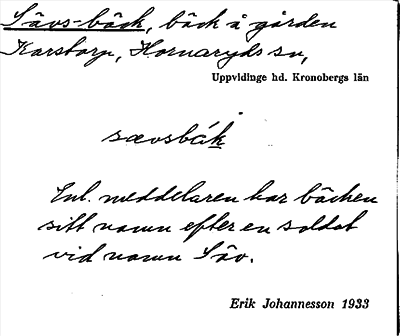 Sävs-bäck, bäck å gården
Karstorp, Hornaryds sn,
Uppvidinge hd. Kronobergs län
sævsbák
Enl. meddelaren har bäcken
sitt namn efter en soldat
vid namn Säv.
Erik Johannesson 1933